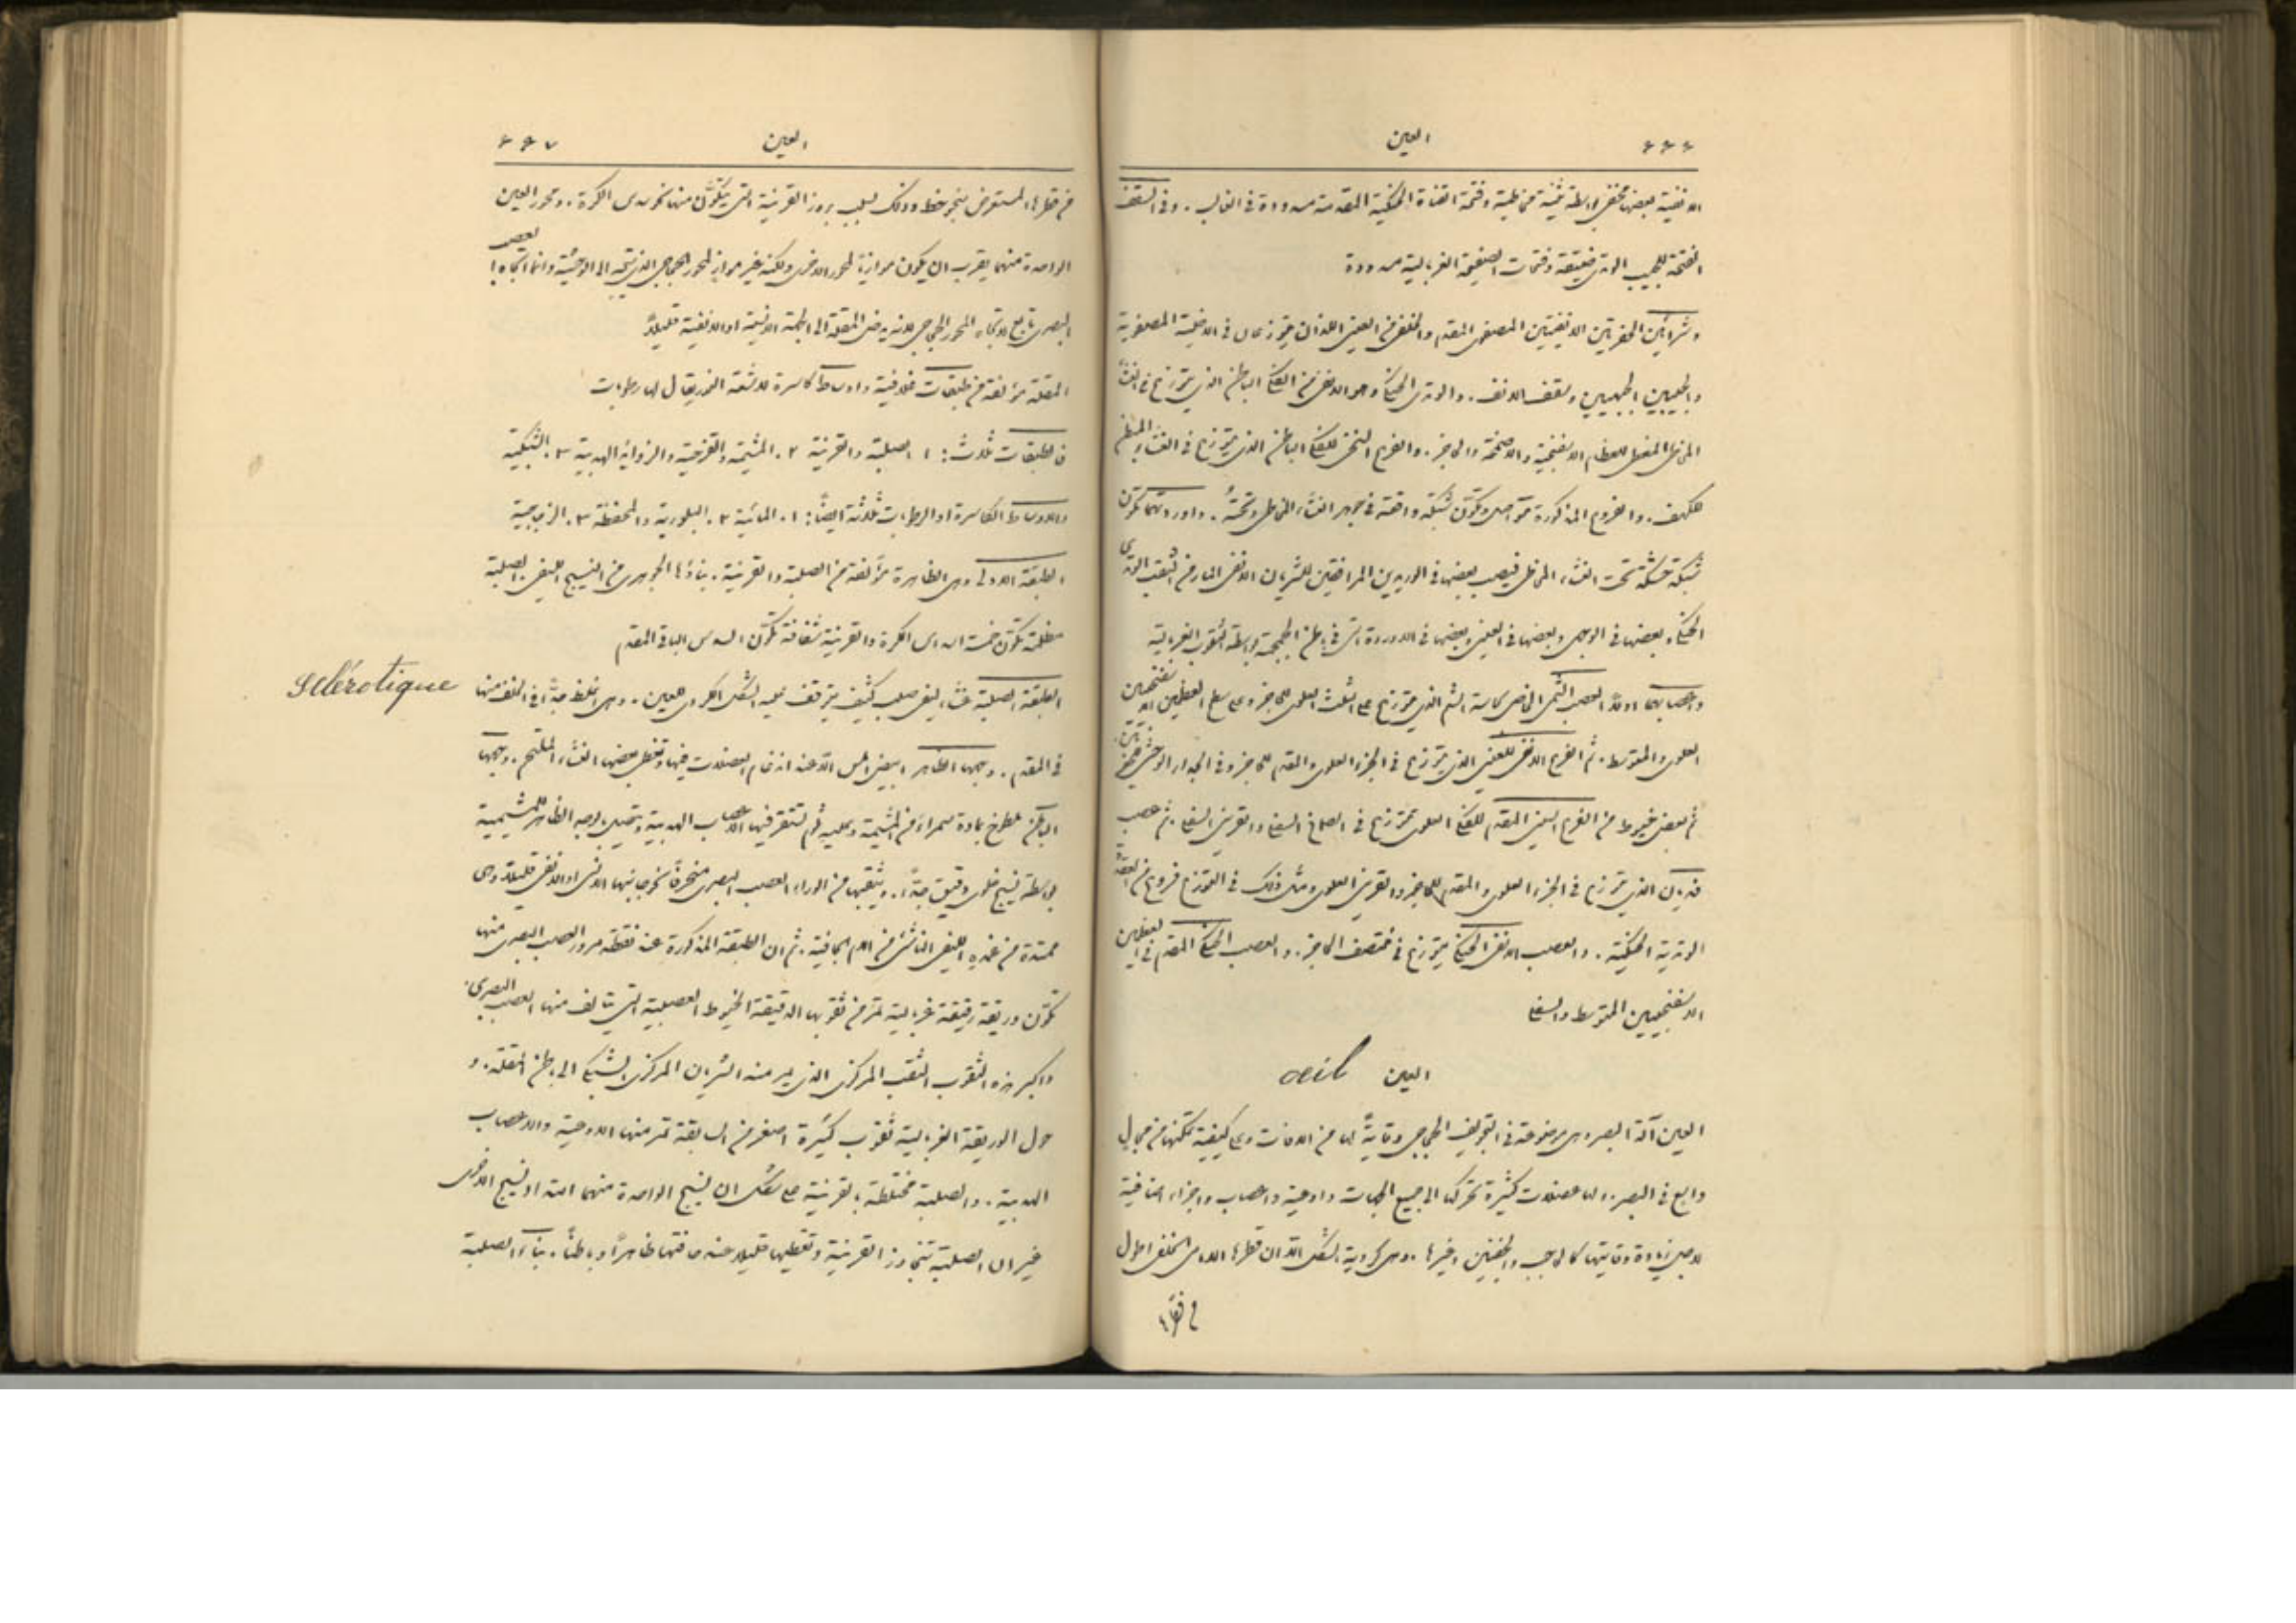 العين
الانفية بعضها مختفٍ بواسطة ثنية مخاطية وفتحة القناة الحنكية المقدمة مسدودة في الغالب. وفي السقف
الفتحة للجيب الوتدي ضيقة وفتحات الصفيحة الغربالية مسدودة
وشرايين الحفرتين الانفيتين المصفوي المقدم والخلفي من العيني اللذان يتوزعان في الاخلية المصفوية
والجيبين الجبهيين وسقف الانف. والوتدي الحنكي وهو الانفي من الفكي الباطن الذي يتوزع في الغشاء
المخاطي المغطي للعظام الاسفنجية والاصمخة والحاجز. والفرع السنخي للفكي الباطن الذي يتوزع في الغشاء المبطن
للكهف. والفروع المذكورة تتواصل وتكوّن شبكة واقعة في جوهر الغشاء المخاطي وتحتهُ. واوردتهما تكوّن
شبكة مشتبكة تحت الغشاء المخاطي فيصب بعضها في الوريدين المرافقين للشريان الانفي المار من الثقب الوتدي
الحنكي وبعضها في الوجهي وبعضها في العيني وبعضها في الاوردة التي في باطن الجمجمة بواسطة الثقوب الغربالية
واعصابهما اولاً العصب الشمي الخاص بحاسة الشم الذي يتوزع على الثلث العلوي للحاجز وعلى سطح العظمين الاسفنجيين
العلوي والمتوسط. ثم الفرع الانفي للعيني الذي يتوزع في الجزء العلوي والمقدم للحاجز وفي الجدار الوحشي
ثم بعض خيوط من الفرع السني المقدم للفكي العلوي تتوزع في الصماخ السفلي والقرين السفلي. ثم عصب
فديان الذي يتوزع في الجزء العلوي والمقدم للحاجز والقرين العلوي ومثل ذلك في التوزع فروع من العقدة
الوتدية الحنكية. والعصب الانفي الحنكي يتوزع في منتصف الحاجز. والعصب الحنكي المقدم في العظمين
الاسفنجيين المتوسط والسفلي
العين œil
العين آلة البصر وهي موضوعة في التجويف الحجاجي وقايةً لها من الآفات وعلى كيفية تمكنها من مجال
واسع في البصر. ولها عضلات كثيرة تحركها الى جميع الجهات واوعية واعصاب واجزاء اضافية
لاجل زيادة وقايتها كالحاجب والجفنين وغيرها. وهي كروية الشكل الا ان قطرها الامامي الخلفي اطول
العين ٢٦٧
من قطرها المستعرض بنحو خط وذلك لسبب بروز القرنية التي يتكوّن منها نحو سدس الكرة. ومحور العين
الواحدة منهما يقرب ان يكون موازياً لمحور الاخرى ولكنه غير موازٍ لمحور الحجاج الذي يتجه الى الوحشية وانما اتجاه العصب
البصري تابع لاتجاه المحور الحجاجي لانه يدخل المقلة الى الجهة الانسية او الانفية قليلاً
المقلة مؤلفة من طبقات غلافية واوساط كاسرة للاشعة النور يقال لها رطوبات
فالطبقات ثلاث: ١. الصلبة والقرنية ٢. المشيمة والقزحية والزوائد الهدبية ٣. الشبكية
والاوساط الكاسرة او الرطوبات ثلاثة ايضاً: ١. المائية ٢. البلورية والمحفظة ٣. الزجاجية
الطبقة الاولى وهي الظاهرة مؤلفة من الصلبة والقرنية. بناؤها الجوهري من النسيج الليفي. الصلبة
مظلمة تكوّن خمسة اسداس الكرة والقرنية شفافة تكوّن السدس الباقي المقدم
الطبقة الصلبة غشاء ليفي صلب كثيف يتوقف عليه الشكل الكروي للعين. وهي اغلظ جداً في الخلف منها
sclérotique
في المقدم. وجهها الظاهر ابيض املس الا عند اندغام العضلات فيها وتغطي بعضها الغشاء الملتحم. وجهها
الباطن ملطوخ بمادة سمراء من المشيمة وعليه ثلم تستقر فيها الاعصاب الهدبية ويتصل بالوجه الظاهر للمشيمية
بواسطة نسيج خلوي دقيق جداً. ويثقبها من الوراء العصب البصري منحرفاً نحو جانبها الانسي او الانفي قليلاً وهي
ممتدة من غمده الليفي الناشئ من الام الجافية. ثم ان الطبقة المذكورة عند نقطة مرور العصب البصري منها
تكوّن وريقة رقيقة غربالية تمر من ثقوبها الدقيقة الخيوط العصبية التي يتالف منها العصب البصري.
واكبر هذه الثقوب الثقب المركزي الذي يمر منه الشريان المركزي الشبكي الى باطن المقلة. و
حول الوريقة الغربالية ثقوب كثيرة اصغر من السابقة تمر منها الاوعية والاعصاب
الهدبية. والصلبة مختلطة بالقرنية على شكل ان نسيج الواحدة منهما امتداد نسيج الاخرى
غير ان الصلبة تتجاوز القرنية وتغطيها قليلاً عند حافتها ظاهراً وباطناً. بناء الصلبة